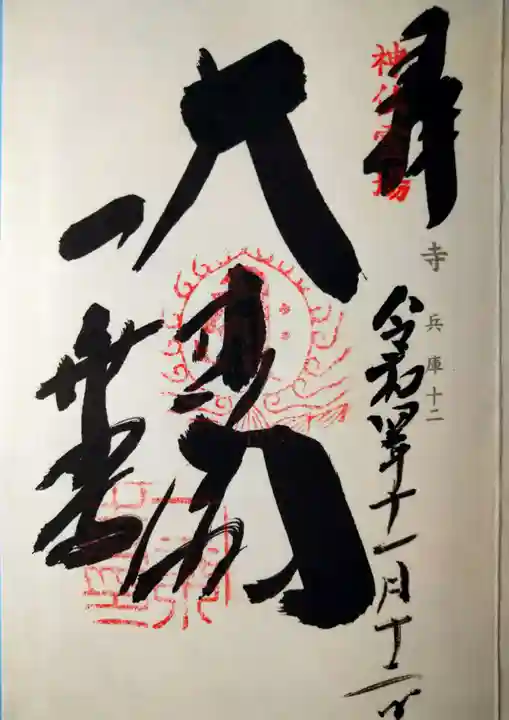 奉拝
神仏霊場
寺 兵庫十二
令和四年十一月十二日
大悲閣
一乗寺